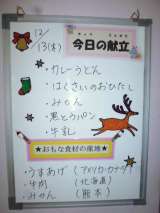 12/13(木)
今日の献立
・カレーうどん
・はくさいのおひたし
・みかん
・黒とうパン
・牛乳
★おもな食材の産地★
・うすあげ(アメリカ・カナダ)
・牛肉(北海道)
・みかん(熊本)